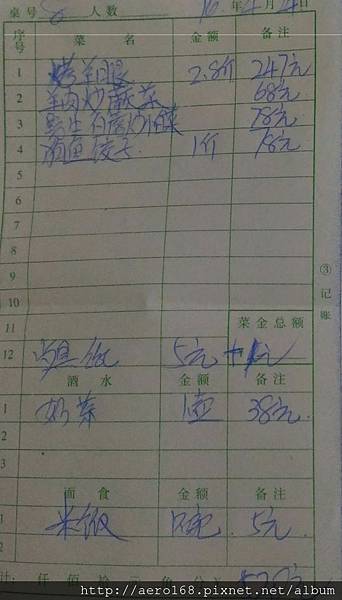 桌号 人数 16年4月4日
序号 菜名 金额 备注
1 烤羊腿 2.8斤 247元
2 羊肉炒蕨菜 68元
3 野生 78元
4 鱼饺子 1斤 78元
5
6
7
8
9
10
③记账
11 菜金总额
12 5元
酒水 金额 备注
1 奶茶 1壶 38元
2
3
面食 金额 备注
1 米饭 5元
2
计: 仟 佰 拾 元 角 分
http://aero168.pixnet.net/album